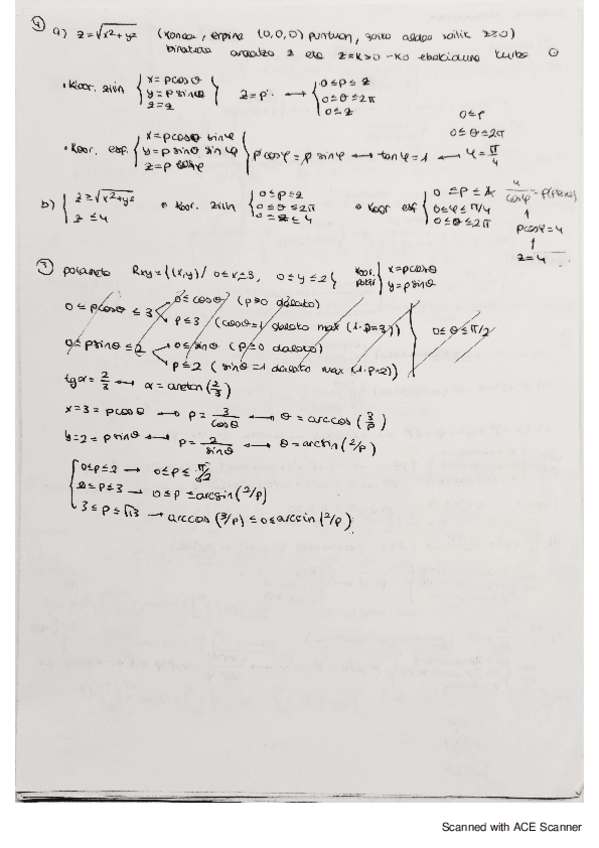 ④ a) z=√x²+y² (konoa, erpina (0,0,0) puntuan, goiko aldea soilik z≥0)
z=k>0 -ko ebakidura kurba
• koor. zilin { x=ρcosθ y=ρsinθ z=z } z=ρ → { 0≤ρ≤z 0≤θ≤2π 0≤z
• koor. esf. { x=ρcosθ sinφ y=ρsinθ sinφ z=ρcosφ } ρcosφ=ρsinφ → tanφ=1 → φ=π/4 0≤ρ 0≤θ≤2π
b) { z≥√x²+y² z≤4 • koor zilin { 0≤ρ≤z 0≤θ≤2π 0≤z≤4 • koor esf { 0≤ρ≤ 4/cosφ 0≤φ≤π/4 0≤θ≤2π ρcosφ=4 ↑ z=4
③ polarrak Rxy={(x,y)/ 0≤x≤3, 0≤y≤2} koor. polar { x=ρcosθ y=ρsinθ
0≤ρcosθ≤3 0≤cosθ (ρ≥0 delako)
ρ≤3 (cosθ=1 delako max (1·ρ=3)) 0≤θ≤π/2
0≤ρsinθ≤2 0≤sinθ (ρ≥0 delako)
ρ≤2 (sinθ=1 delako max (1·ρ=2))
tgα=2/3 → α=arctan(2/3)
x=3=ρcosθ → ρ=3/cosθ → θ=arccos(3/ρ)
y=2=ρsinθ → ρ=2/sinθ → θ=arcsin(2/ρ)
0≤ρ≤2 → 0≤ρ≤π/2
2≤ρ≤3 → 0≤ρ≤arcsin(2/ρ)
3≤ρ≤√13 → arccos(3/ρ)≤θ≤arcsin(2/ρ)
Scanned with ACE Scanner